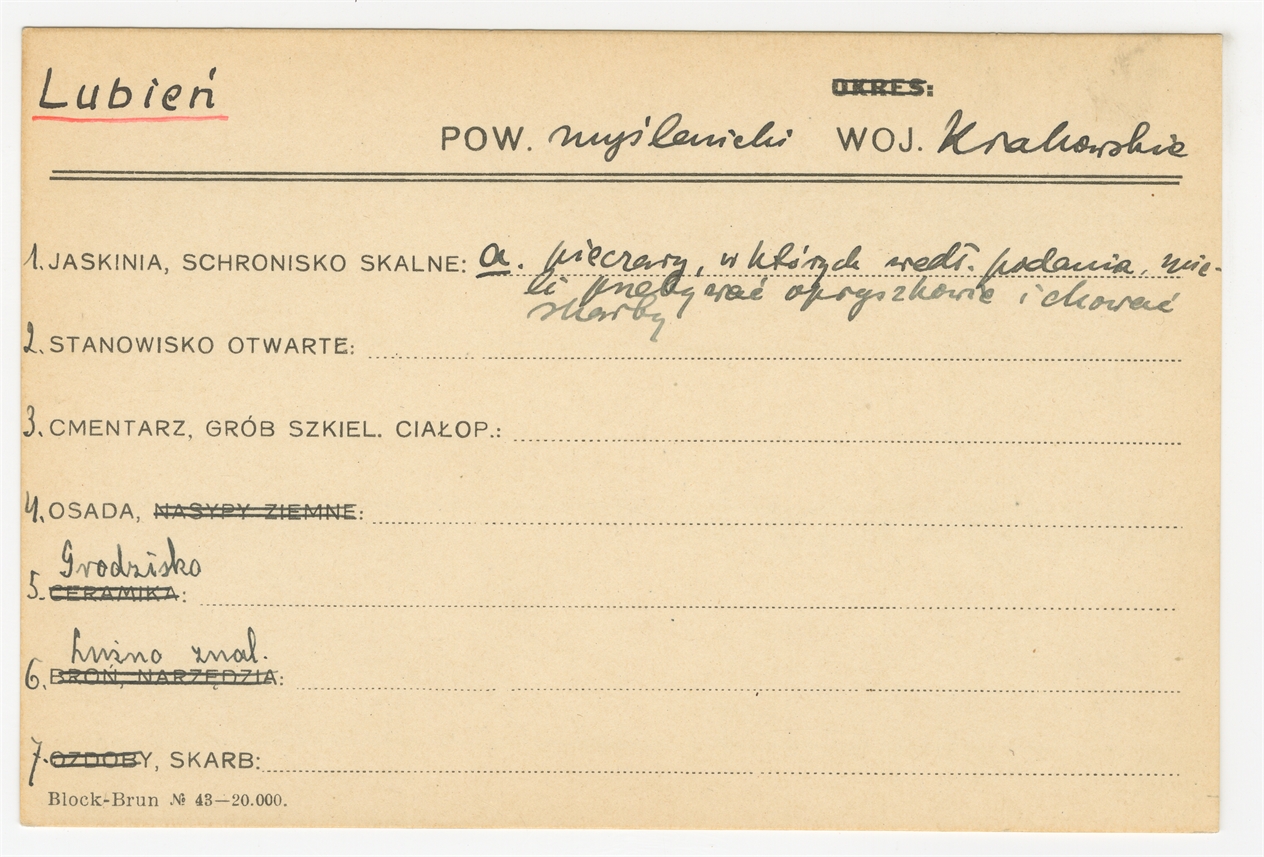 Lubień
OKRES:
POW. myślenicki WOJ. Krakowskie
1. JASKINIA, SCHRONISKO SKALNE: a. pieczary, w których wedł. podania, mie-
li przebywać opryszkowie i chować
skarby
2. STANOWISKO OTWARTE:
3. CMENTARZ, GRÓB SZKIEL. CIAŁOP.:
4. OSADA, NASYPY ZIEMNE:
Grodzisko
5. CERAMIKA:
Luźno znal.
6. BROŃ, NARZĘDZIA:
7. OZDOBY, SKARB:
Block-Brun № 43—20.000.